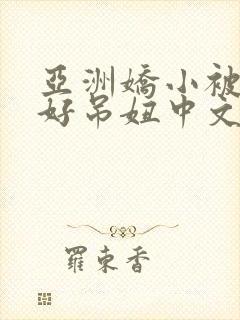 亞洲嬌小被
好吊妞中文
羅東香